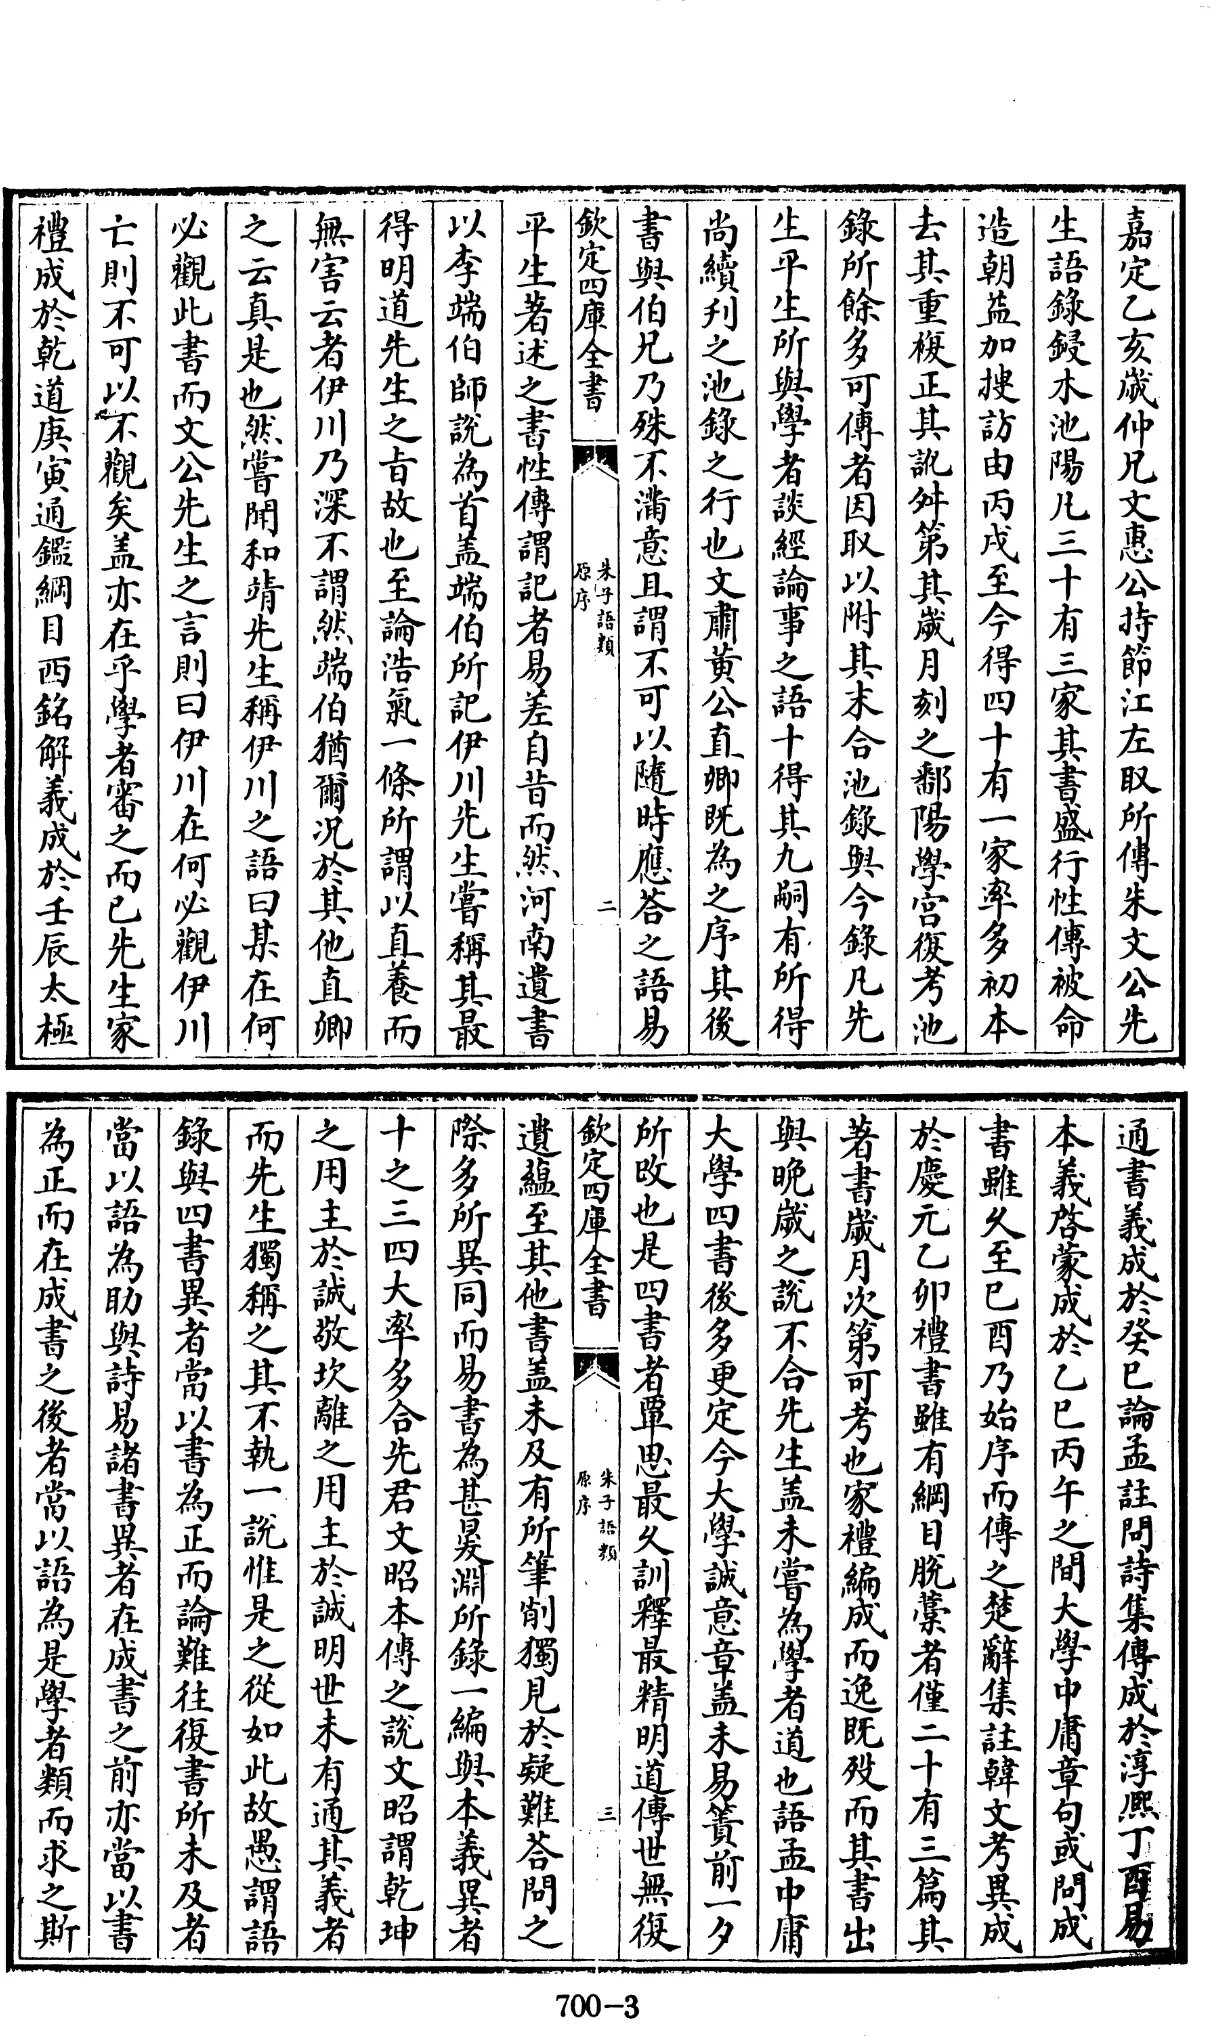 嘉定乙亥嵗仲兄文惠公持節江左取所傳朱文公先
生語錄鋟木池陽凡三十有三家其書盛行性傳被命
造朝益加搜訪由丙戌至今得四十有一家率多初本
去其重複正其訛舛第其嵗月刻之鄱陽學宫復考池
錄所餘多可傳者因取以附其末合池錄與今錄凡先
生平生所與學者談經論事之語十得其九嗣有所得
尚續刋之池錄之行也文肅黄公直卿既為之序其後
書與伯兄乃殊不滿意且謂不可以隨時應答之語易
欽定四庫全書
朱子語類
原序
二
平生著述之書性傳謂記者易差自昔而然河南遺書
以李端伯師說為首盖端伯所記伊川先生嘗稱其最
得明道先生之旨故也至論浩氣一條所謂以直養而
無害云者伊川乃深不謂然端伯猶爾况於其他直卿
之云真是也然嘗聞和靖先生稱伊川之語曰某在何
必觀此書而文公先生之言則曰伊川在何必觀伊川
亡則不可以不觀矣盖亦在乎學者審之而已先生家
禮成於乾道庚寅通鑑綱目西銘解義成於壬辰太極
通書義成於癸巳論孟註問詩集傳成於淳熙丁酉易
本義啓蒙成於乙巳丙午之間大學中庸章句或問成
書雖乆至己酉乃始序而傳之楚辭集註韓文考異成
於慶元乙卯禮書雖有綱目脱藁者僅二十有三篇其
著書嵗月次第可考也家禮編成而逸既殁而其書出
與晩嵗之說不合先生盖未嘗為學者道也語孟中庸
大學四書後多更定今大學誠意章盖未易簀前一夕
所改也是四書者覃思最乆訓釋最精明道傳世無復
欽定四庫全書
朱子語類
原序
三
遺藴至其他書盖未及有所筆削獨見於疑難答問之
際多所異同而易書為甚㬊淵所錄一編與本義異者
十之三四大率多合先君文昭本傳之說文昭謂乾坤
之用主於誠敬坎離之用主於誠明世未有通其義者
而先生獨稱之其不執一說惟是之從如此故愚謂語
錄與四書異者當以書為正而論難往復書所未及者
當以語為助與詩易諸書異者在成書之前亦當以書
為正而在成書之後者當以語為是學者類而求之斯
700-3